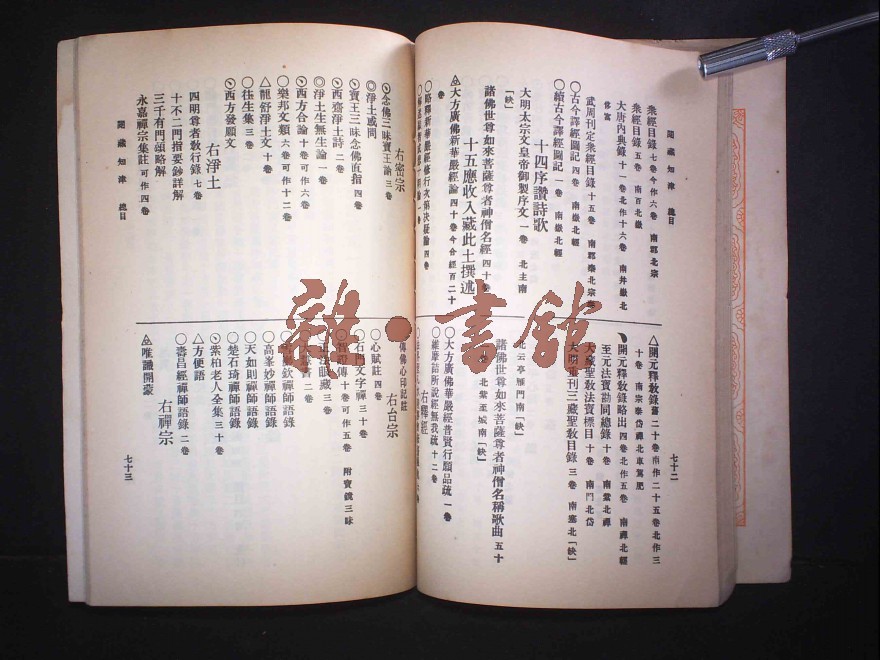 閱藏知津 總目
七十二
衆經目錄 七卷今作六卷 南郡北宗
衆經目錄 五卷 南百北嶽
大唐内典錄 十一卷北作十六卷 南井嶽北
武周刊定衆經目錄 十五卷
〇古今譯經圖記 四卷 南嶽北經
〇續古今譯經圖記 一卷 南嶽北經
十四序讚詩歌
大明太宗文皇帝御製序文 一卷 北主南
「缺」
諸佛世尊如來菩薩尊者神僧名經 四十卷
十五應收入藏此土撰述
大方廣佛新華嚴經論 四十卷今合經百二十
卷
〇略釋新華嚴經修行次第決疑論 四卷
△開元釋敎錄 二十卷南作二十五卷北作三
十卷
開元釋敎錄略出 四卷北作五卷 南禪北經
至元法寶勘同總錄 十卷 南黨北禪
大藏聖敎法寶標目 十卷 南門北岱
大明重刊三藏聖敎目錄 三卷 南塞北「缺」
北云亭雁門南「缺」
諸佛世尊如來菩薩尊者神僧名稱歌曲 五十
卷 北紫至城南「缺」
〇大方廣佛華嚴經普賢行願品疏 一卷
〇維摩詰所說經無我疏 十二卷
右釋經
右密宗
念佛三昧寶王論 三卷
◎淨土或問
寶王三昧念佛直指 四卷
西齋淨土詩 二卷
◎淨土生無生論 一卷
西方合論 十卷可作六卷
〇樂邦文類 六卷可作十二卷
△龍舒淨土文 十卷
〇往生集 三卷
西方發願文
右淨土
四明尊者敎行錄 七卷
十不二門指要鈔詳解
三千有門頌略解
永嘉禪宗集註 可作四卷
傳佛心印記註
右台宗
〇心賦註 四卷
〇石門文字禪 三十卷
十卷可作五卷 附寶鏡三昧
眼藏 三卷
書 二卷
欽禪師語錄
〇高峯妙禪師語錄
〇天如則禪師語錄
〇楚石琦禪師語錄
紫柏老人全集 三十卷
△方便語
〇壽昌經禪師語錄 二卷
右禪宗
唯識開蒙
閱藏知津 總目
七十三
雜·書館